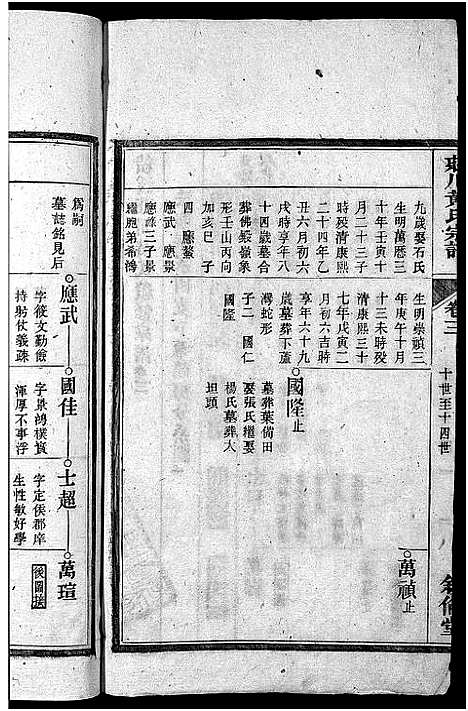 川黃氏宗譜
卷三
十世至十四世
敘倫堂
九歲娶石氏
生明萬曆三
十年壬寅十
月二十三子
時歿清康熙
二十四年乙
丑六月初六
戌時享年八
十四歲墓合
葬佛殿嶺象
形壬山丙向
加亥巳 子
四 應鰲
應武 應景
應錄三子景
繼胞弟希鴻
生明崇禎三
年庚午十月
十三未時歿
清康熙三十
七年戊寅二
月初六吉時
享年六十九
歲墓葬下蘆
灣蛇形
子二 國仁
國隆
國隆止
墓葬葉備田
娶張氏繼娶
楊氏墓葬大
坦頭
萬禎止
爲嗣
墓誌銘見后
應武
字筱文勤儉
持躬仗義疎
國佳
字景鴻樸實
渾厚不事浮
士超
字定侯郡庠
生性敏好學
萬瑄
後圖送